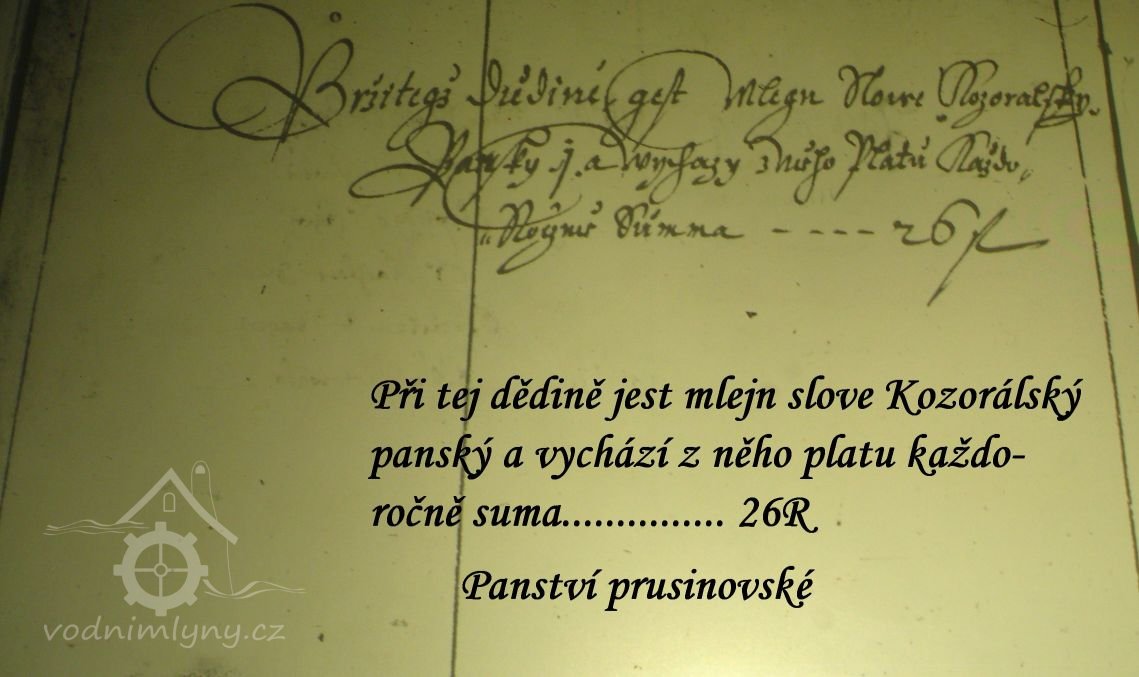 Pržitegž diedině gest Mlegn Slowe Kozoralsky
Pansky j. a wychazy z niho Platu Každo„
„Rocžnie Summa - - - - 26 f
Při tej dědině jest mlejn slove Kozorálský
panský a vychází z něho platu každo-
ročně suma............... 26R
Panství prusinovské
vodnimlyny.cz